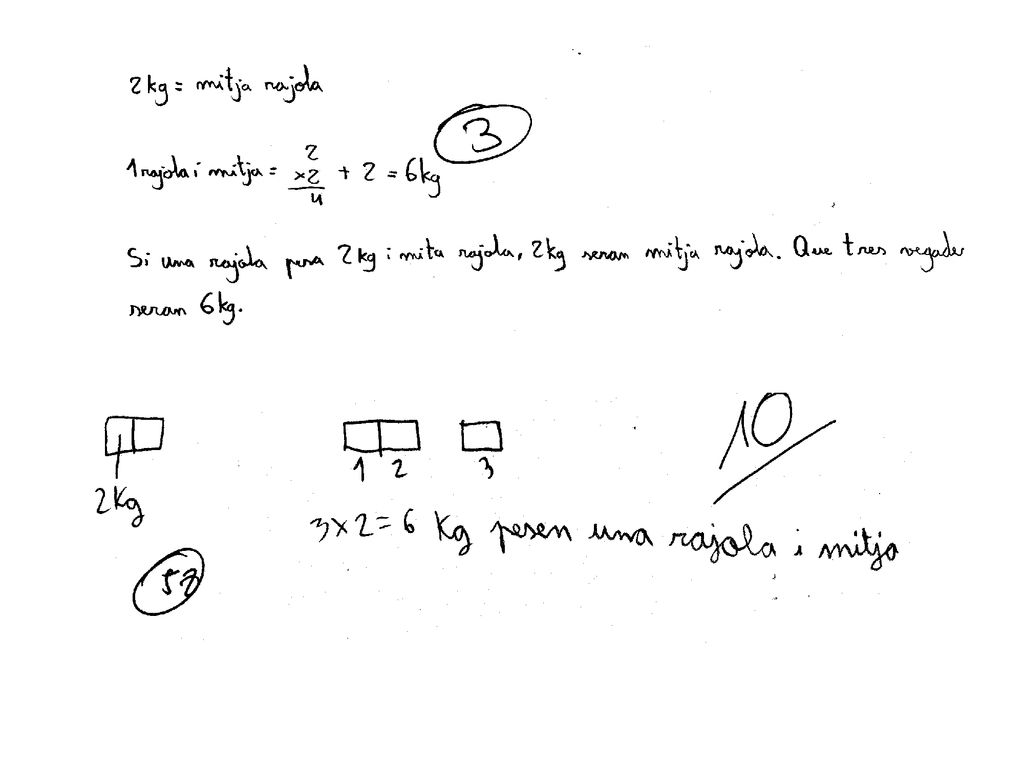 2kg = mitja rajola
3
2
1 rajola i mitja = x2 + 2 = 6kg
4
Si una rajola pesa 2kg i mita rajola, 2kg seran mitja rajola. Que tres vegades
seran 6kg.
10
1 2 3
2Kg
3x2=6 Kg pesen una rajola i mitja